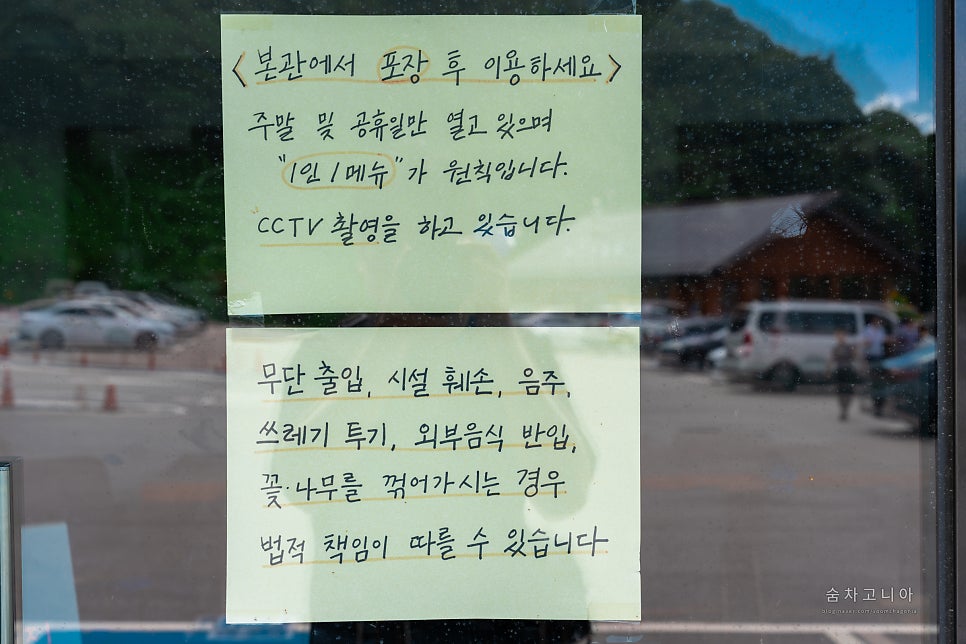 <본관에서 포장 후 이용하세요>
주말 및 공휴일만 열고 있으며
"1인 1메뉴"가 원칙입니다.
CCTV 촬영을 하고 있습니다.
무단 출입, 시설 훼손, 음주,
쓰레기 투기, 외부음식 반입,
꽃·나무를 꺾어가시는 경우
법적 책임이 따를 수 있습니다
숨차고니아